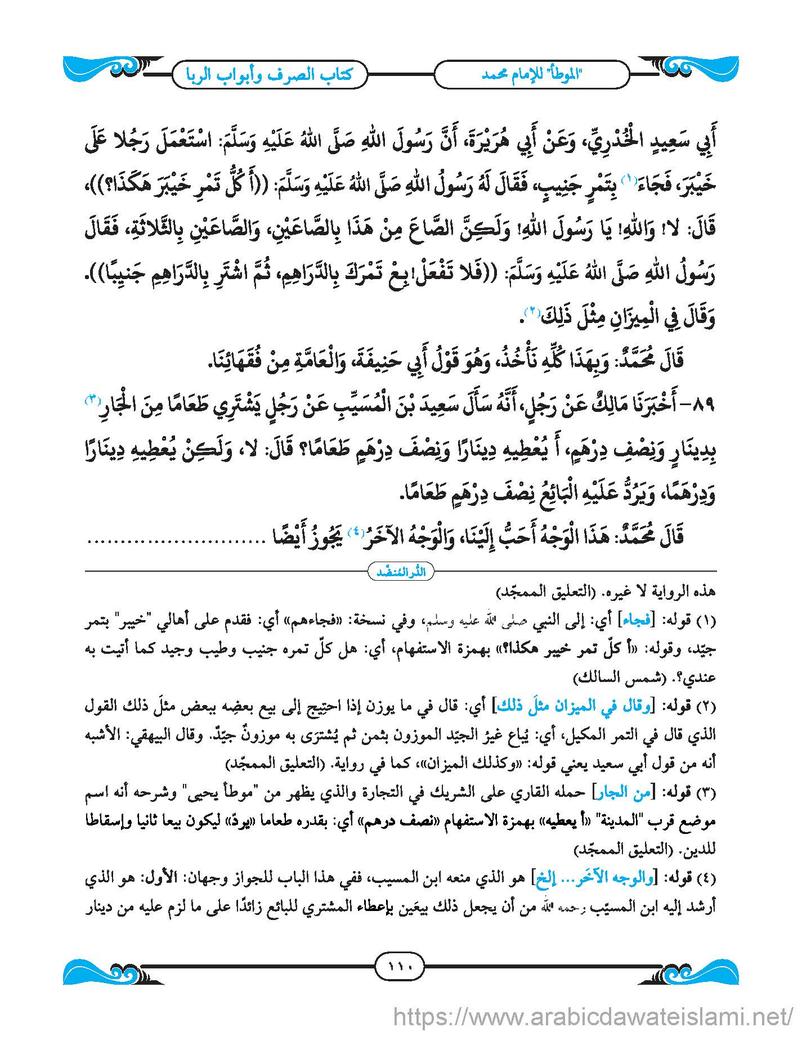 "الموطأ" للإمام محمد
كتاب الصرف وأبواب الربا
أَبِي سَعِيدٍ الْخُدْرِيِّ، وَعَنْ أَبِي هُرَيْرَةَ، أَنَّ رَسُولَ اللهِ صَلَّى اللهُ عَلَيْهِ وَسَلَّمَ: اسْتَعْمَلَ رَجُلا عَلَى
خَيْبَرَ، فَجَاءَ(١) بِتَمْرٍ جَنِيبٍ، فَقَالَ لَهُ رَسُولُ اللهِ صَلَّى اللهُ عَلَيْهِ وَسَلَّمَ: ((أَ كُلُّ تَمْرِ خَيْبَرَ هَكَذَا؟))،
قَالَ: لا! وَاللهِ! يَا رَسُولَ اللهِ! وَلَكِنَّ الصَّاعَ مِنْ هَذَا بِالصَّاعَيْنِ، وَالصَّاعَيْنِ بِالثَّلاثَةِ، فَقَالَ
رَسُولُ اللهِ صَلَّى اللهُ عَلَيْهِ وَسَلَّمَ: ((فَلا تَفْعَلْ! بِعْ تَمْرَكَ بِالدَّرَاهِمِ، ثُمَّ اشْتَرِ بِالدَّرَاهِمِ جَنِيبًا)).
وَقَالَ فِي الْمِيزَانِ مِثْلَ ذَلِكَ(٢).
قَالَ مُحَمَّدٌ: وَبِهَذَا كُلِّهِ نَأْخُذُ، وَهُوَ قَوْلُ أَبِي حَنِيفَةَ، وَالْعَامَّةِ مِنْ فُقَهَائِنَا.
٨٩- أَخْبَرَنَا مَالِكٌ عَنْ رَجُلٍ، أَنَّهُ سَأَلَ سَعِيدَ بْنَ الْمُسَيِّبِ عَنْ رَجُلٍ يَشْتَرِي طَعَامًا مِنَ الْجَارِ(٣)
بِدِينَارٍ وَنِصْفِ دِرْهَمٍ، أَ يُعْطِيهِ دِينَارًا وَنِصْفَ دِرْهَمٍ طَعَامًا؟ قَالَ: لا، وَلَكِنْ يُعْطِيهِ دِينَارًا
وَدِرْهَمًا، وَيَرُدُّ عَلَيْهِ الْبَائِعُ نِصْفَ دِرْهَمٍ طَعَامًا.
قَالَ مُحَمَّدٌ: هَذَا الْوَجْهُ أَحَبُّ إِلَيْنَا، وَالْوَجْهُ الآخَرُ(٤) يَجُوزُ أَيْضًا ...........................
الدُّر المُنضَّد
هذه الرواية لا غيره. (التعليق الممجّد)
(١) قوله: [فجاء] أي: إلى النبي صلى الله عليه وسلم، وفي نسخة: «فجاءهم» أي: فقدم على أهالي "خيبر" بتمر
جيّد، وقوله: «أ كلّ تمر خيبر هكذا؟» بهمزة الاستفهام، أي: هل كلّ تمره جنيب وطيب وجيد كما أتيت به
عندي؟. (شمس السالك)
(٢) قوله: [وقال في الميزان مثلَ ذلك] أي: قال في ما يوزن إذا احتِيج إلى بيع بعضِه ببعض مثلَ ذلك القول
الذي قال في التمر المكيل، أي: يُباع غيرُ الجيّد الموزون بثمن ثم يُشترَى به موزونٌ جيّدٌ. وقال البيهقي: الأشبه
أنه من قول أبي سعيد يعني قوله: «وكذلك الميزان»، كما في رواية. (التعليق الممجّد)
(٣) قوله: [من الجار] حمله القاري على الشريك في التجارة والذي يظهر من "موطأ يحيى" وشرحه أنه اسم
موضع قرب "المدينة" «أ يعطيه» بهمزة الاستفهام «نصف درهم» أي: بقدره طعاما «يردّ» ليكون بيعا ثانيا وإسقاطا
للدين. (التعليق الممجّد)
(٤) قوله: [والوجه الآخَر... إلخ] هو الذي منعه ابن المسيب، ففي هذا الباب للجواز وجهان: الأول: هو الذي
أرشد إليه ابن المسيّب رحمه الله من أن يجعل ذلك بيعَين بإعطاء المشتري للبائع زائدًا على ما لزم عليه من دينار
١١٠
https://www.arabicdawateislami.net/